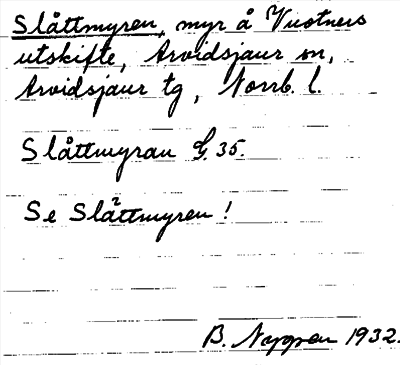 Slåttmyren, myr å Vuotners
utskifte, Arvidsjaur sn,
Arvidsjaur tg, Norrb. l.
Slåttmyran G. 35.
Se Slåttmyren!
B. Nygren 1932.